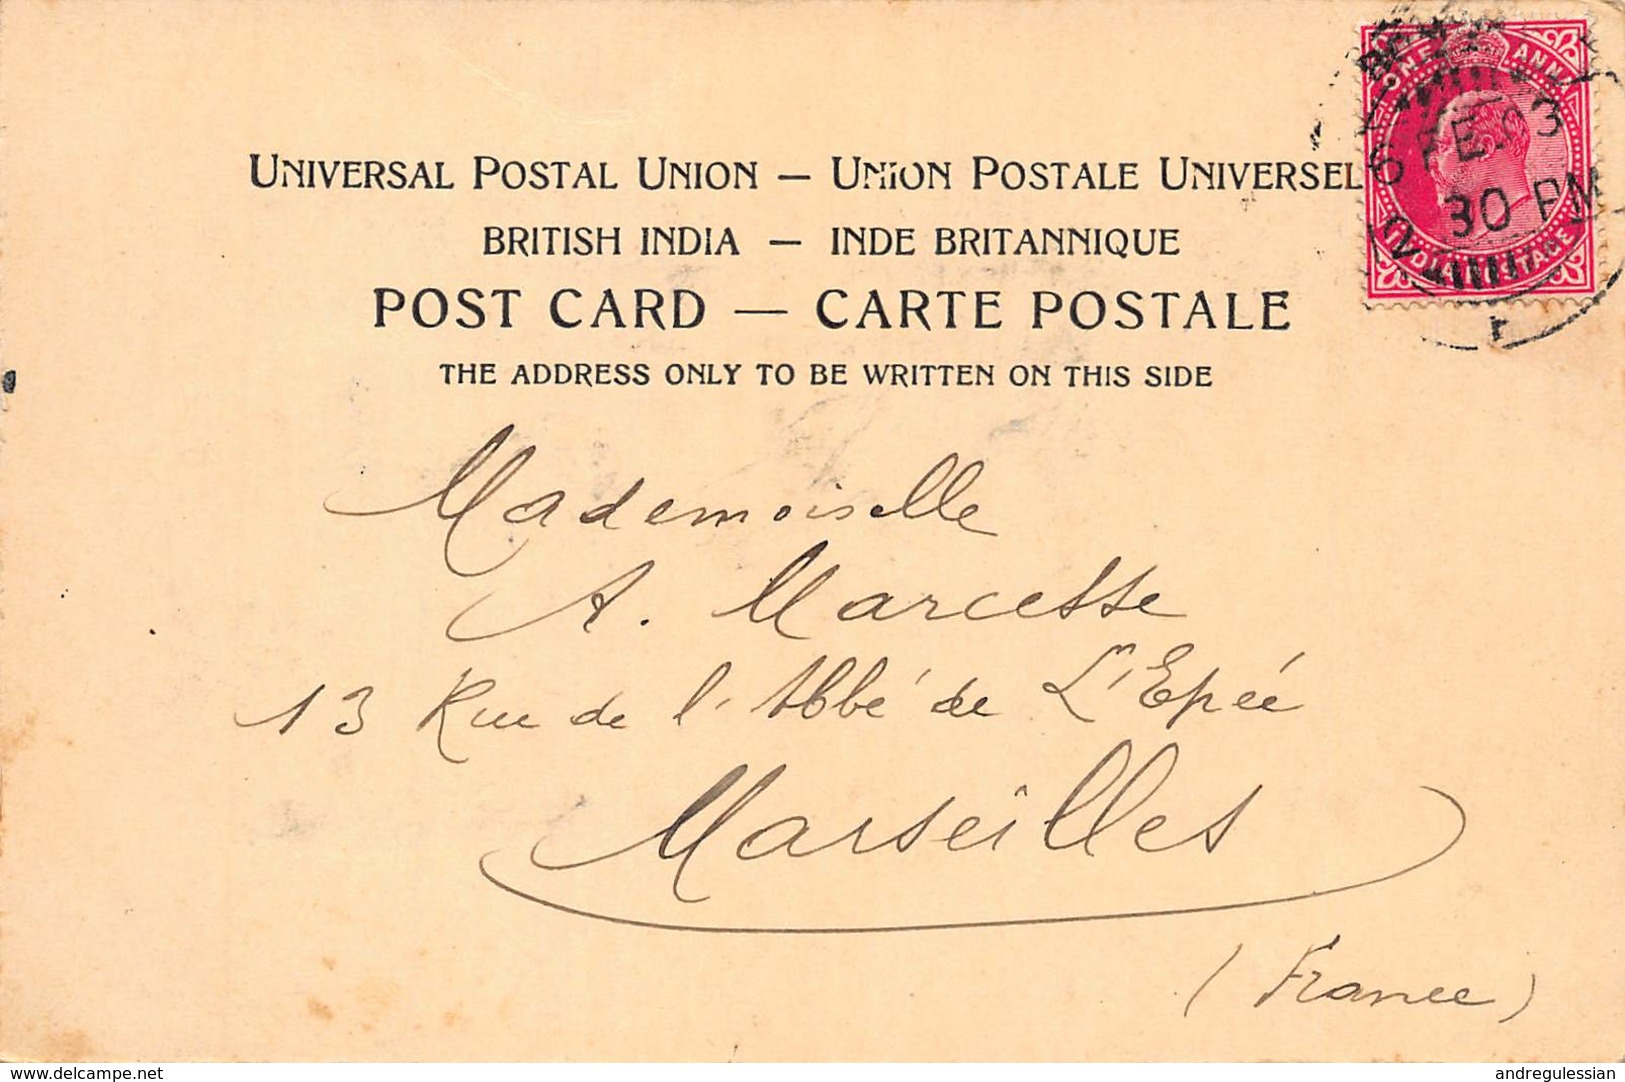 UNIVERSAL POSTAL UNION — UNION POSTALE UNIVERSEL
BRITISH INDIA — INDE BRITANNIQUE
POST CARD — CARTE POSTALE
THE ADDRESS ONLY TO BE WRITTEN ON THIS SIDE
ONE ANNA
INDIA POSTAGE
6 FE.03
30 PM
Mademoiselle
A. Marcesse
13 Rue de l'Abbé de L'Epée
Marseilles
(France)
www.delcampe.net
andregulessian